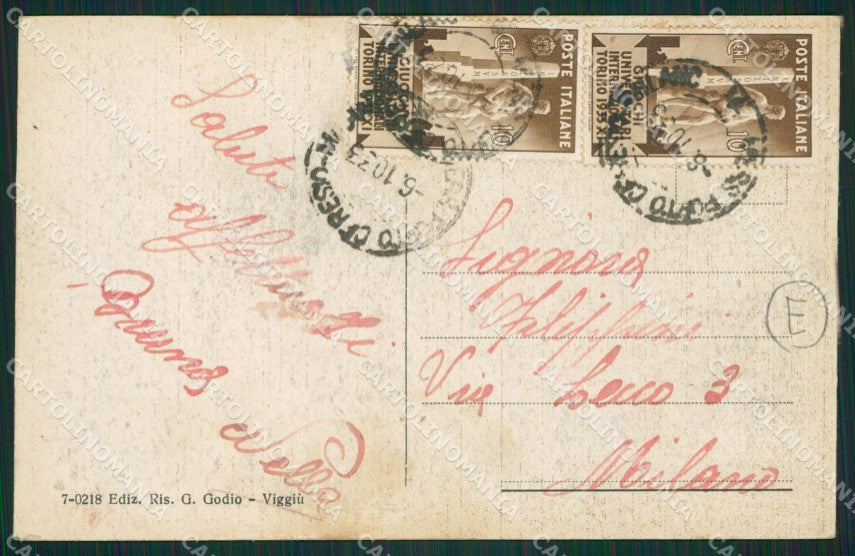 POSTE ITALIANE
CENT
10
GIUOCHI
TORINO 1933 XI
POSTE ITALIANE
CENT
10
GIUOCHI
UNIVERSITARI
INTERNAZIONALI
TORINO 1933 XI
-6.10.33
PORTO CERESIO
-6.10.33
PORTO CERESIO
Saluti
affettuosi
Signora
Filippini
Via Lecco 3
Milano
E
7-0218 Ediz. Ris. G. Godio - Viggiù
CARTOLINOMANIA